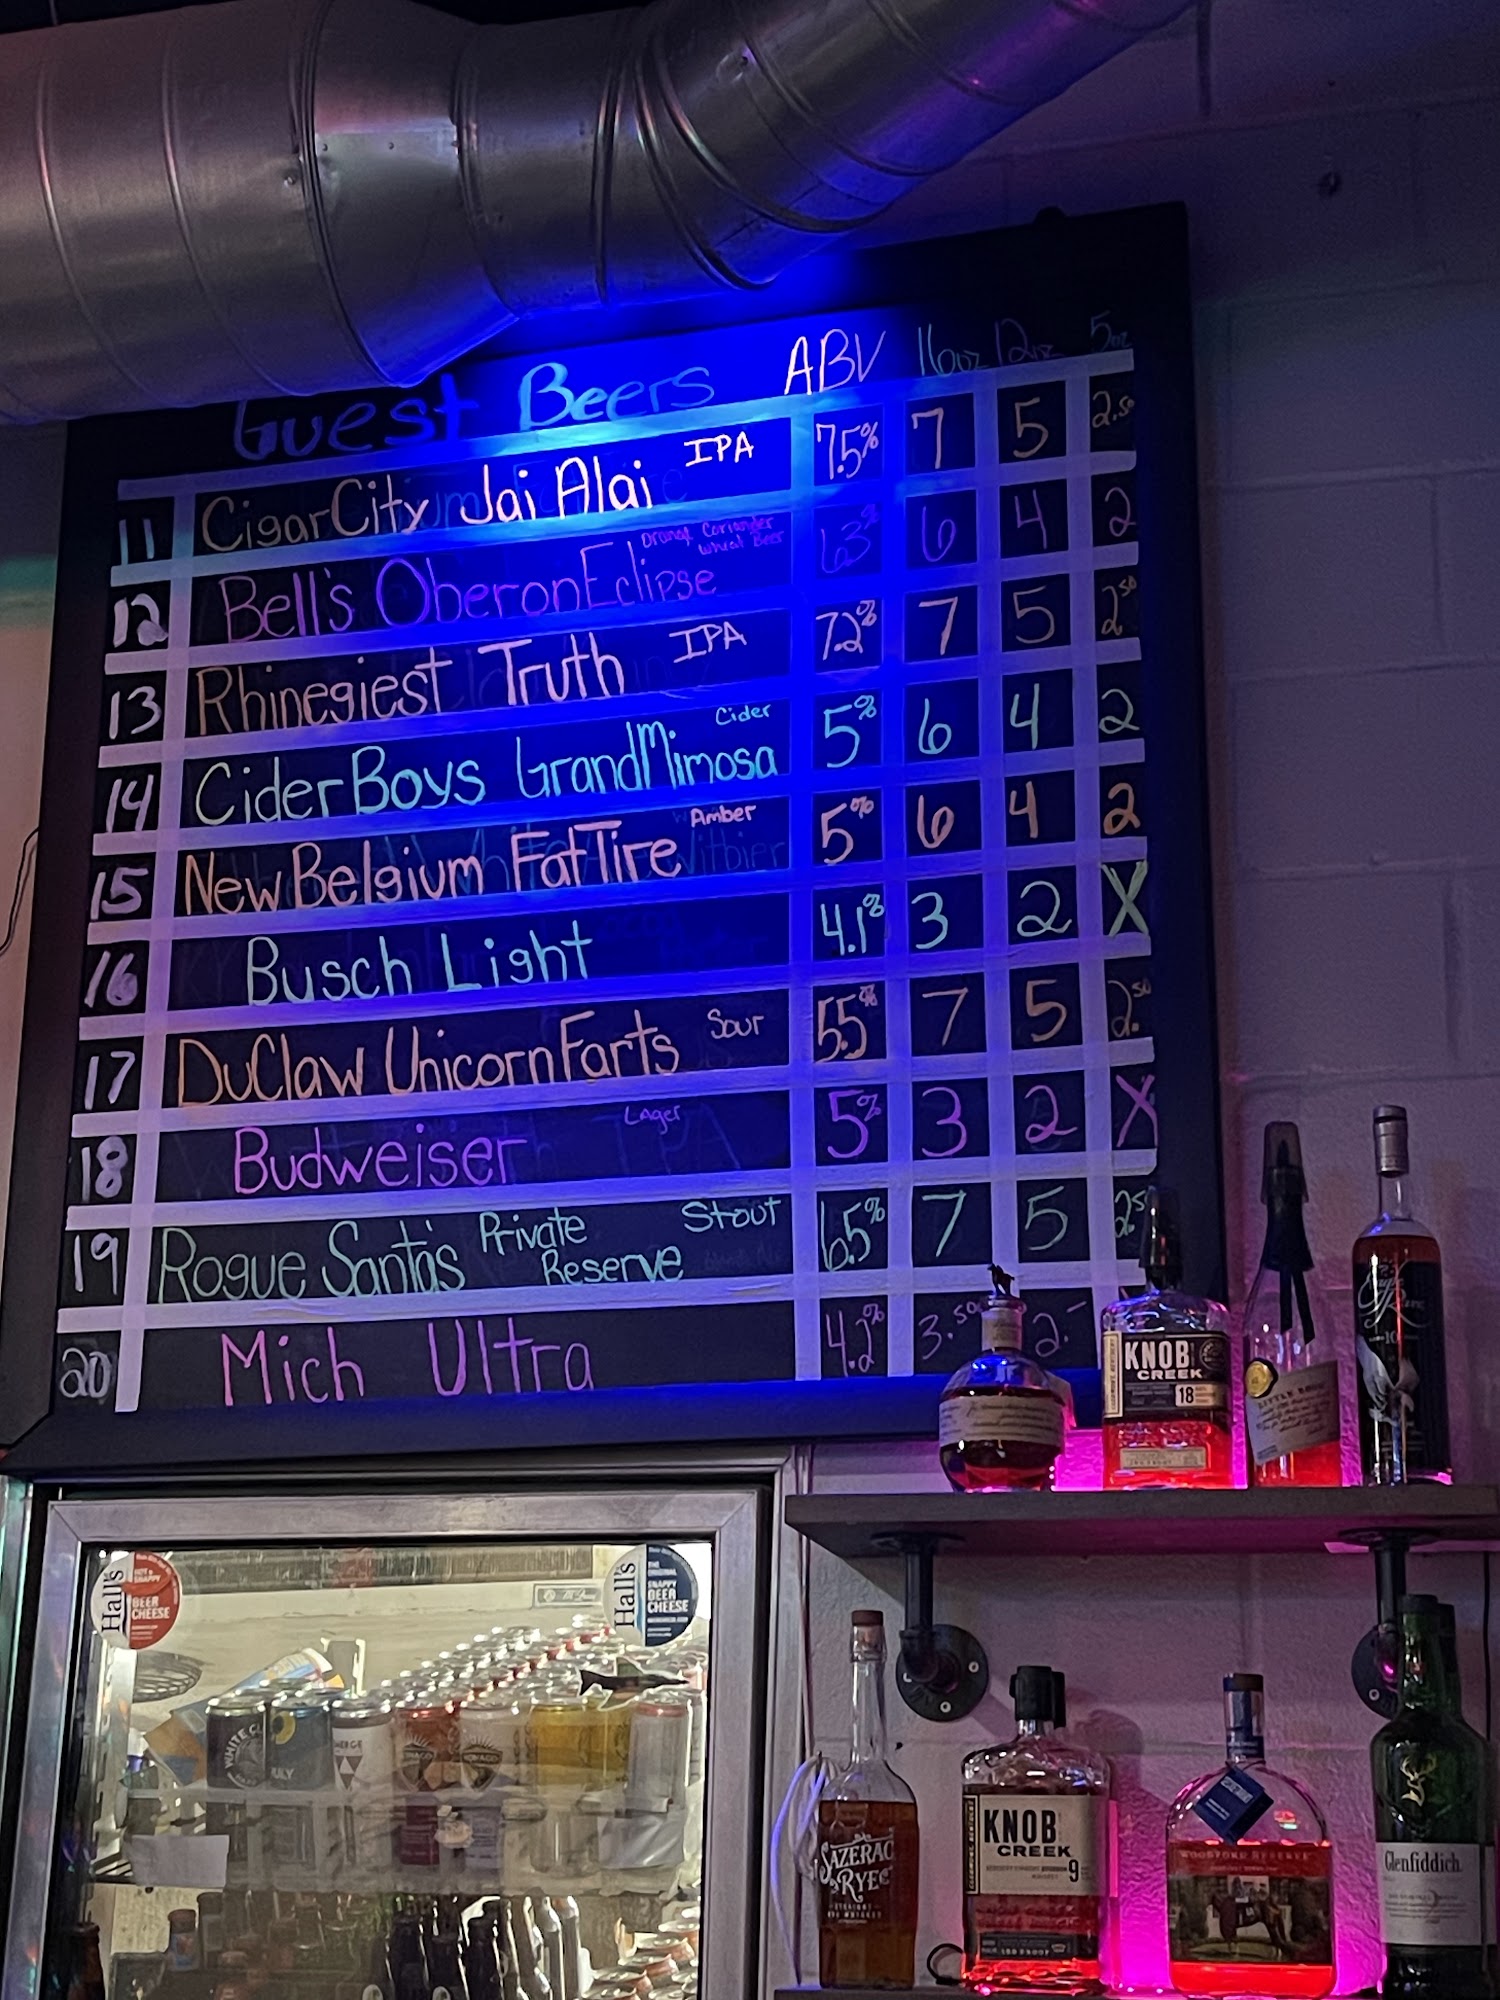 Guest Beers ABV 16oz 12oz 5oz
11 Cigar City Jai Alai IPA 7.5% 7 5 2.50
12 Bell's Oberon Eclipse Orange Coriander Wheat Beer 6.3% 6 4 2
13 Rhinegiest Truth IPA 7.2% 7 5 2.50
14 Cider Boys Grand Mimosa Cider 5% 6 4 2
15 New Belgium Fat Tire Amber 5% 6 4 2
16 Busch Light 4.1% 3 2 X
17 DuClaw Unicorn Farts Sour 5.5% 7 5 2.50
18 Budweiser Lager 5% 3 2 X
19 Rogue Santa's Private Reserve Stout 6.5% 7 5 2.50
20 Mich Ultra 4.2% 3.50 2.-
KNOB
CREEK
18
LITTLE BOOK
Eagle Rare
10
Hall's
HOT &
SNAPPY
BEER
CHEESE
Hall's
THE
ORIGINAL
SNAPPY
BEER
CHEESE
WHITE CL
SAZERAC
RYE
STRAIGHT
RYE WHISKEY
KNOB
CREEK
KENTUCKY STRAIGHT BOURBON
WHISKEY
9
100 PROOF
WOODFORD RESERVE
Glenfiddich.